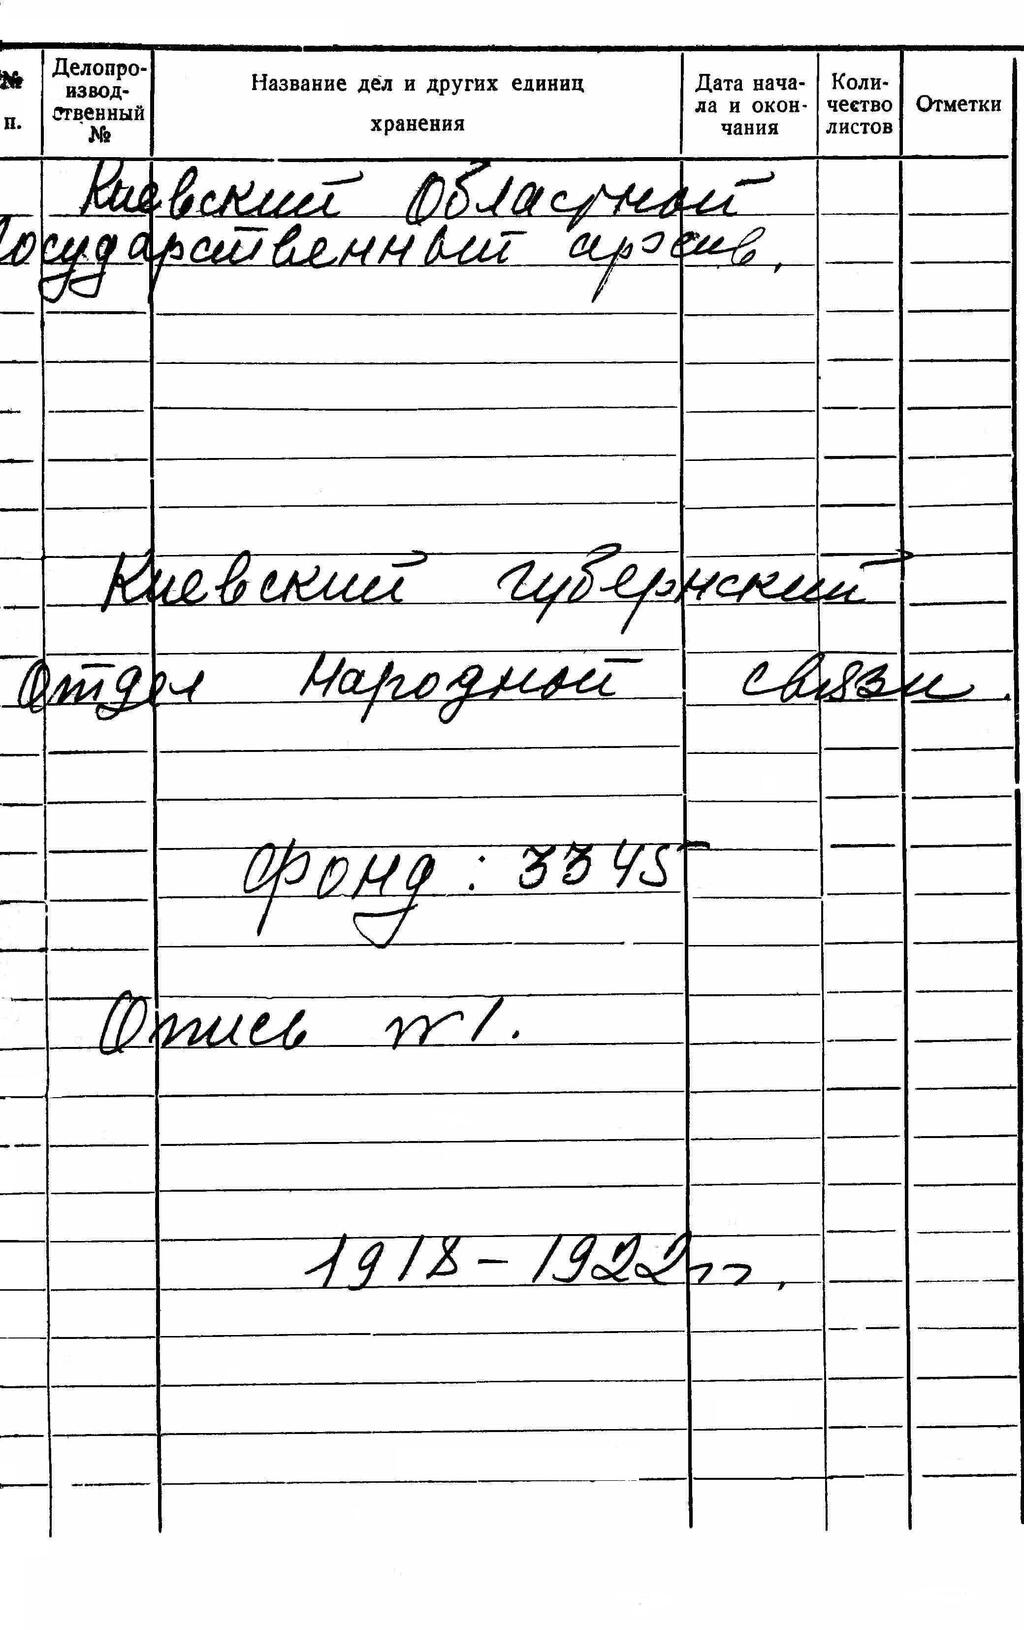 № п.
Делопро-
извод-
ственный
№
Название дел и других единиц
хранения
Дата нача-
ла и окон-
чания
Коли-
чество
листов
Отметки
Киевский Областной
Государственный архив.
Киевский губернский
Отдел Народной связи.
Фонд: 3345
Опись № 1.
1918 – 1922 гг.